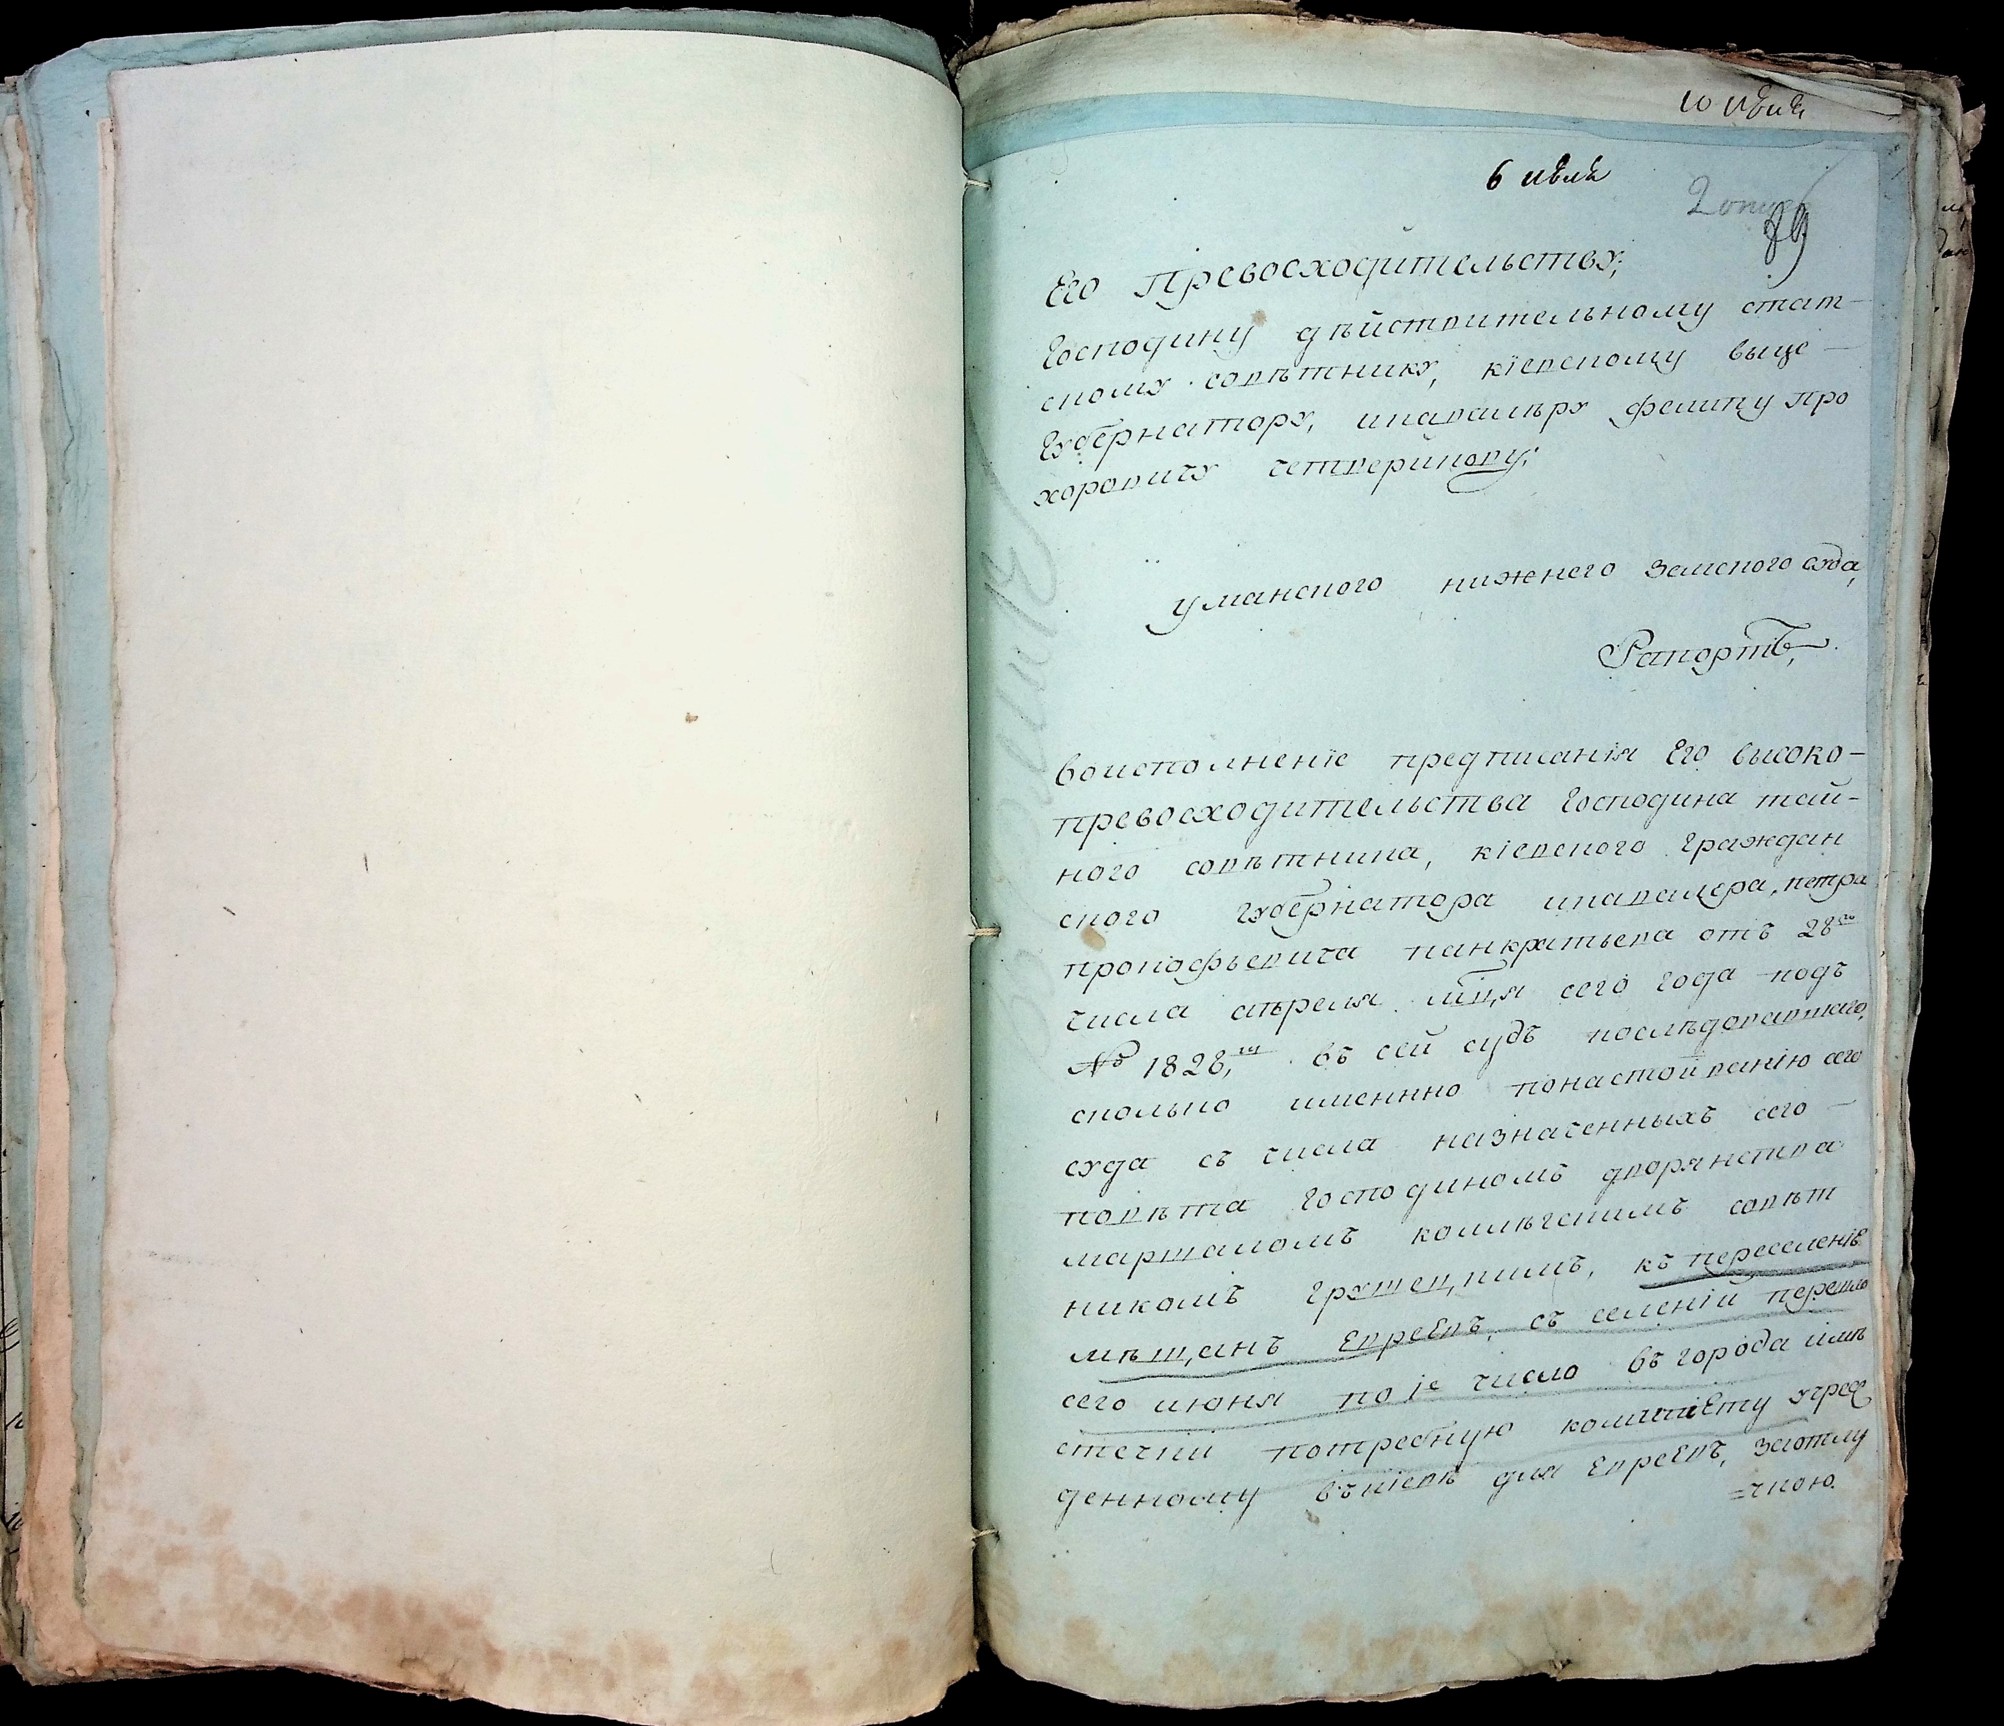 10 июля
6 июля
89
Его Превосходительству,
Господину дѣйствительному стат-
скому совѣтнику, кіевскому выце-
Губернатору, икавалѣру филипу про
хоровичу четверикову;
уманского нижнего Земского суда,
Рапортъ,
воисполненіе предписанія Его высоко-
превосходительства Господина тай-
ного совѣтника, кіевского граждан
ского Губернатора икавалера, петра
прокофьевича панкратьева отъ 28го
числа апреля мця сего года подъ
№ 1828, въ сей судъ послѣдовавшаго,
сколько именно понастойванію сего
суда съ числа назначенныхъ сего-
повѣта Господиномъ дворянства
маршаломъ коллѣгскимъ совѣт
никомъ грушецкимъ, къ переселенію
мѣщанъ Евреевъ, съ селеній перешло
сего июня по 1е число въ города имѣ
стечки потребную комитету учреж
денному въ кіевѣ для Евреевъ, заотлу
=чкою